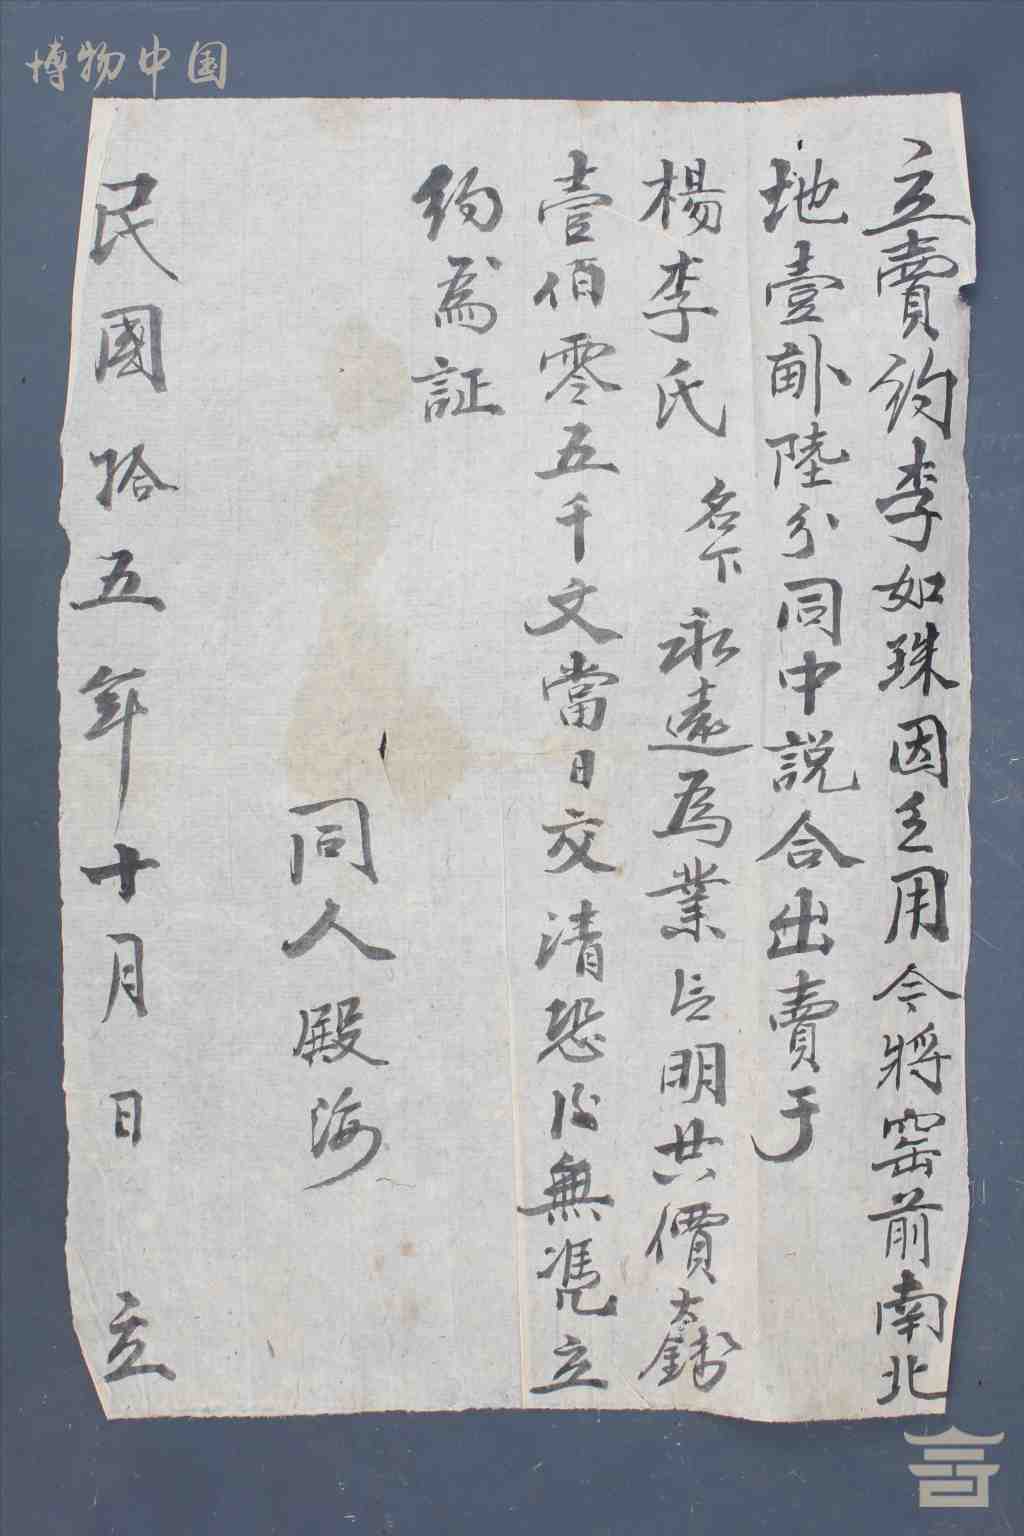 博物中国
立賣约李如珠因乏用今将窑前南北
地壹畝陸分同中説合出賣于
楊李氏名下永遠為業言明共價大錢
壹佰零五千文當日交清恐後無凴立
約為証
同人殿海
民國拾五年十月日立